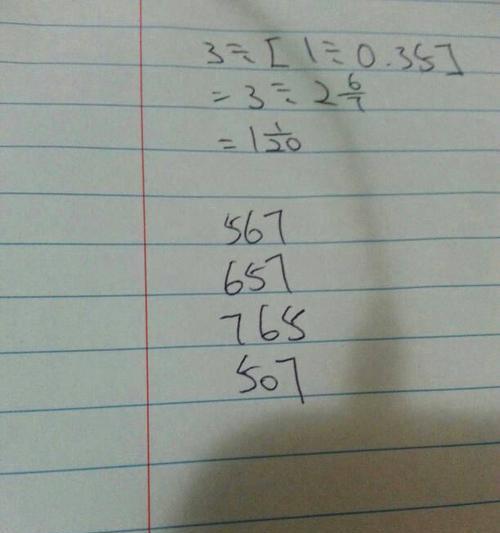 3÷[1÷0.35]
=3÷2 6/7
=1 1/20
567
657
765
507